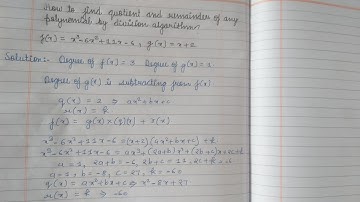 How to find quotient and remainder of any
polynomial by division algorithm?
f(x) = x³-6x²+11x-6, g(x) = x+2
Solution:- Degree of f(x) = 3 Degree of g(x) = 1
Degree of g(x) is subtracting from f(x)
q(x) = 2 ⇒ ax²+bx+c
r(x) = k
f(x) = g(x) × q(x) + r(x)
x³-6x²+11x-6 = (x+2)(ax²+bx+c) + k
x³-6x²+11x-6 = ax³+(2a+b)x²+(2b+c)x+2c+k
a = 1, 2a+b = -6, 2b+c = 11, 2c+k = -6
a = 1, b = -8, c = 27, k = -60
q(x) = ax²+bx+c ⇒ x²-8x+27
r(x) = k ⇒ -60